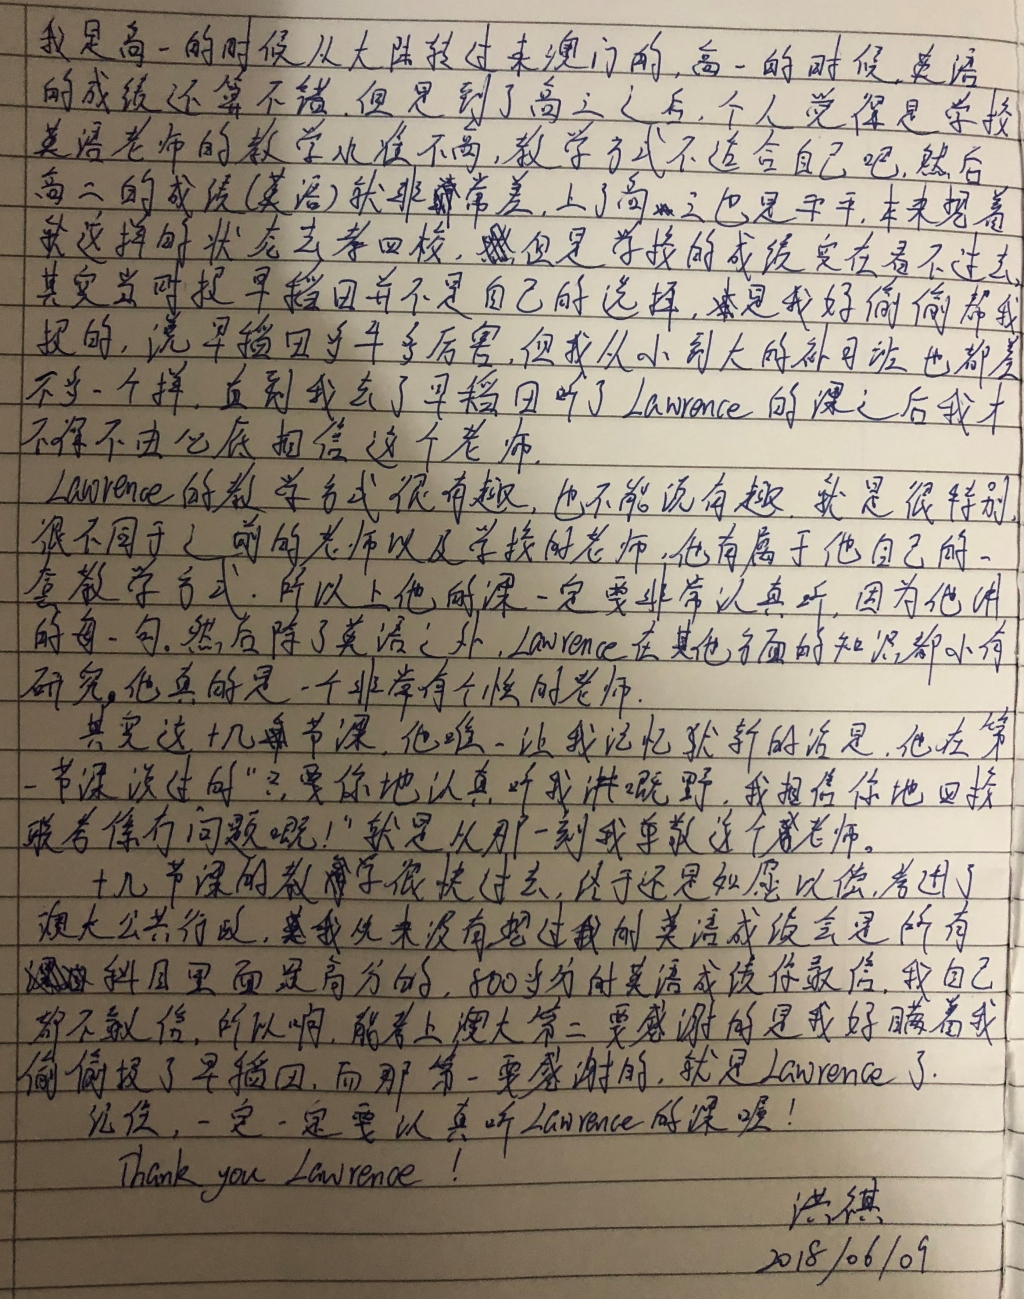 我是高一的时候从大陆转过来澳门的,高一的时候,英语
的成绩还算不错,但是到了高二之后,个人觉得是学校
英语老师的教学水准不高,教学方式不适合自己吧,然后
高二的成绩(英语)就非常差,上了高三也是平平,本来想着
就这样的状态去考四校,但是学校的成绩实在看不过去,
其实当时报早稻田并不是自己的选择,是我好偷偷帮我
报的,说早稻田多年多厉害,但我从小到大的补习班也都差
不多一个样,直到我去了早稻田听了Lawrence的课之后我才
不得不由心底相信这个老师.
Lawrence的教学方式很有趣,也不能说有趣,就是很特别,
很不同于之前的老师以及学校的老师,他有属于他自己的一
套教学方式.所以上他的课一定要非常认真听,因为他讲
的每一句。然后除了英语之外,Lawrence在其他方面的知识都小有
研究,他真的是一个非常有个性的老师.
其实这十几节课,他唯一让我记忆犹新的话是,他在第
一节课说过的"只要你地认真听我讲嘅野,我相信你地四校
联考系冇问题嘅!"就是从那一刻我尊敬这个老师。
十几节课的教学很快过去,终于还是如愿以偿,考进了
澳大公共行政,我从来没有想过我的英语成绩会是所有
科目里面最高分的,800多分的英语成绩你敢信,我自己
都不敢信,所以啊,能考上澳大第二要感谢的是我好瞒着我
偷偷报了早稻田,而那第一要感谢的,就是Lawrence了.
记住,一定一定要认真听Lawrence的课喔!
Thank you Lawrence!
洪祺
2018/06/09